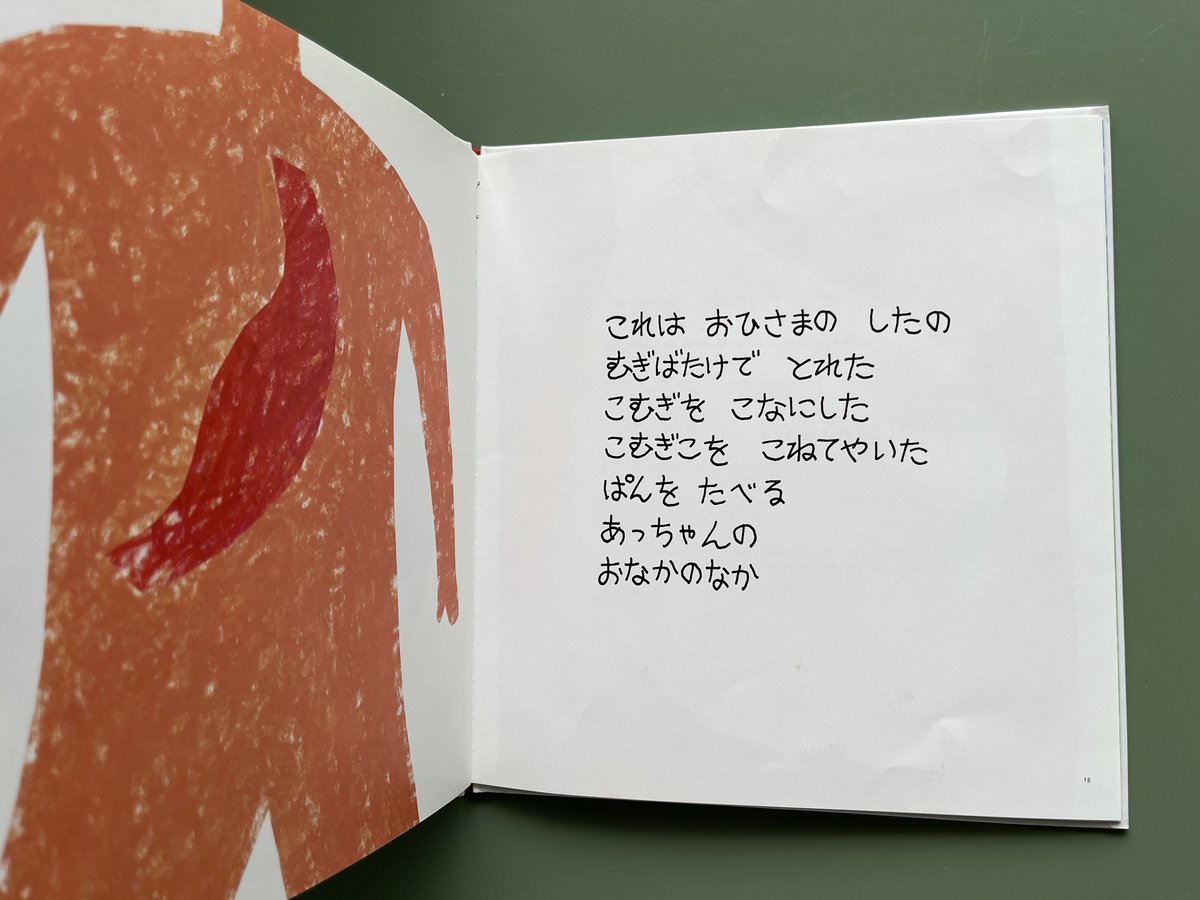 これは おひさまの したの
むぎばたけで とれた
こむぎを こなにした
こむぎこを こねてやいた
ぱんを たべる
あっちゃんの
おなかのなか
15